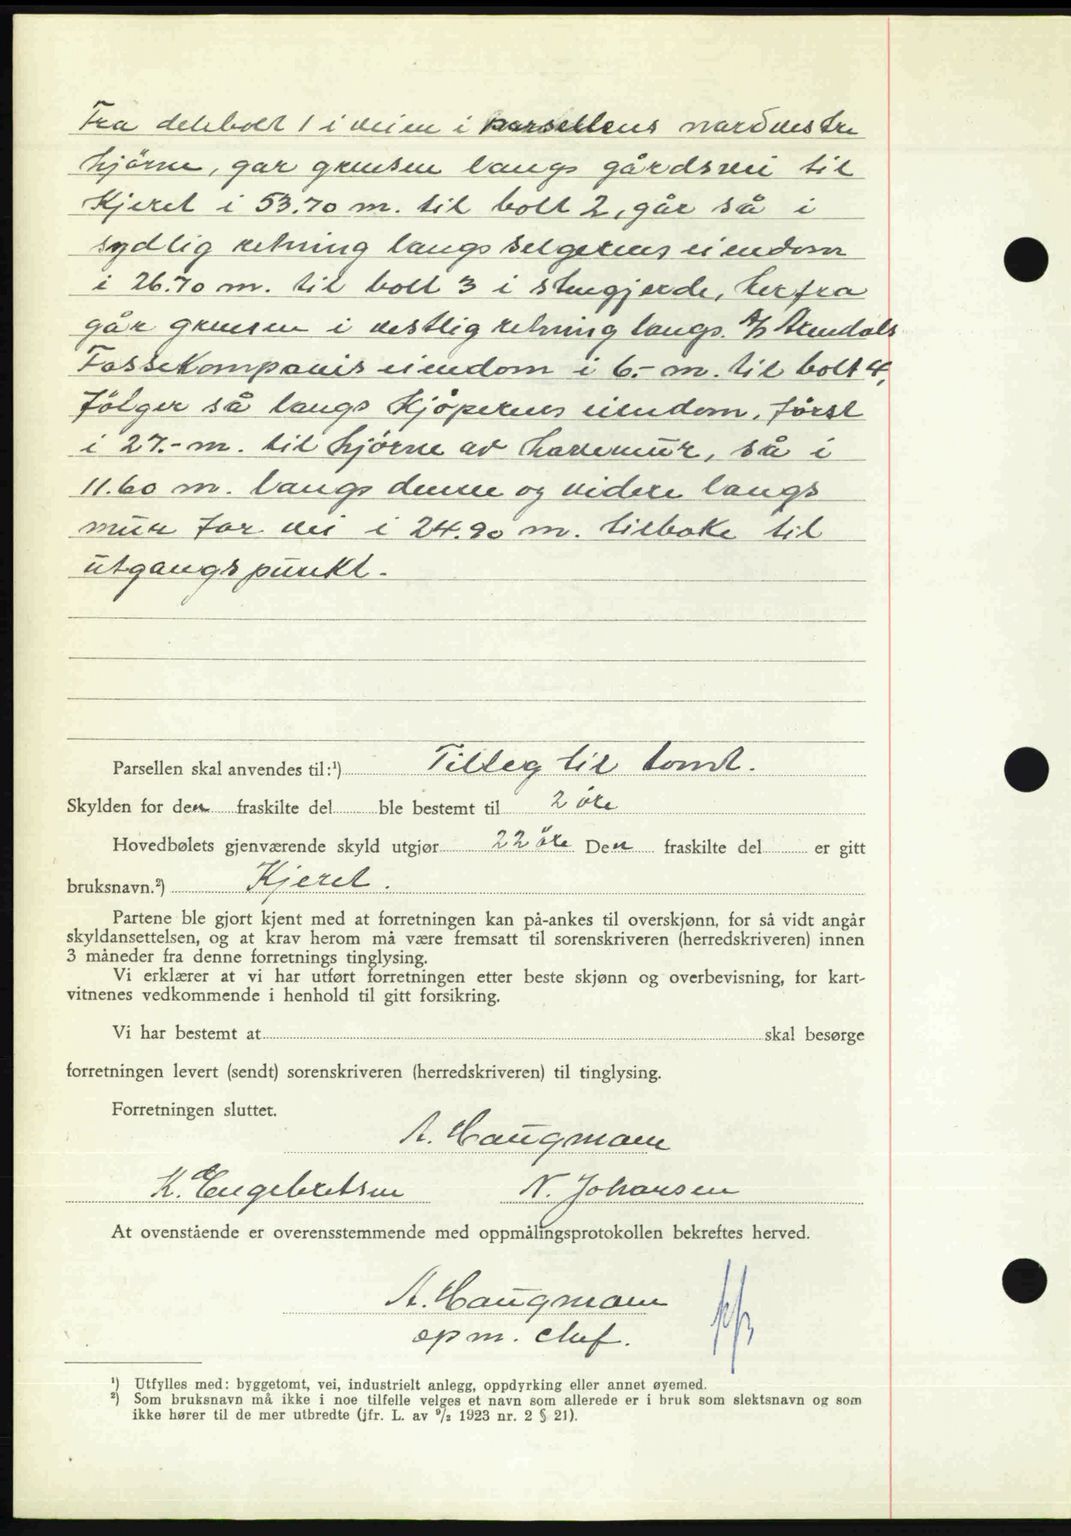 Fra delebolt 1 i veien i parsellens nordvestre
hjörne, gar grensen langs gårdsvei til
Kjeret i 53.70 m. til bolt 2, går så i
sydlig retning langs selgerens eiendom
i 26.70 m. til bolt 3 i stengjerde, herfra
går grensen i vestlig retning langs. A/S Arendals
Fossekompanis eiendom i 6.- m. til bolt 4,
følger så langs Kjøperens eiendom, först
i 27.- m. til hjörne av havemur, så i
11.60 m. langs denne og videre langs
mur for vei i 24.90 m. tilbake til
utgangspunkt.
Parsellen skal anvendes til:¹) Tilleg til tomt.
Skylden for den fraskilte del ble bestemt til 2 öre
Hovedbølets gjenværende skyld utgjør 22 öre Den fraskilte del er gitt
bruksnavn.²) Kjeret.
Partene ble gjort kjent med at forretningen kan på-ankes til overskjønn, for så vidt angår
skyldansettelsen, og at krav herom må være fremsatt til sorenskriveren (herredskriveren) innen
3 måneder fra denne forretnings tinglysing.
Vi erklærer at vi har utført forretningen etter beste skjønn og overbevisning, for kart-
vitnenes vedkommende i henhold til gitt forsikring.
Vi har bestemt at skal besørge
forretningen levert (sendt) sorenskriveren (herredskriveren) til tinglysing.
Forretningen sluttet.
A. Haugmann
K. Engebretsen N. Johansen
At ovenstående er overensstemmende med oppmålingsprotokollen bekreftes herved.
A. Haugmann
opm. chef.
¹) Utfylles med: byggetomt, vei, industrielt anlegg, oppdyrking eller annet øyemed.
²) Som bruksnavn må ikke i noe tilfelle velges et navn som allerede er i bruk som slektsnavn og som
ikke hører til de mer utbredte (jfr. L. av 9/2 1923 nr. 2 § 21).